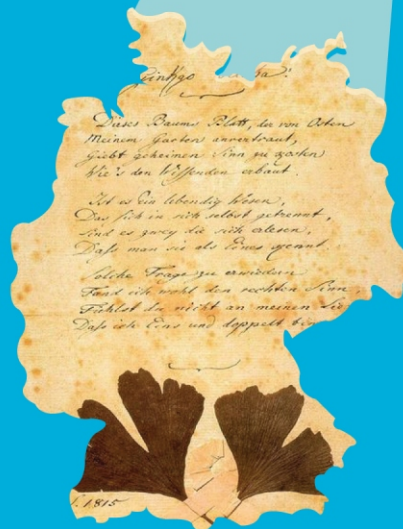 Ginkgo ba.
Dieses Baums Blatt, der von Osten
Meinem Garten anvertraut,
Giebt geheimen Sinn zu kosten
Wie's den Wissenden erbaut.
Ist es Ein lebendig Wesen,
Das sich in sich selbst getrennt,
Sind es zwey die sich erlesen,
Daß man sie als Eines kennt.
Solche Frage zu erwiedern
Fand ich wohl den rechten Sinn,
Fühlst du nicht an meinen Lie
Daß ich Eins und doppelt bin
1815